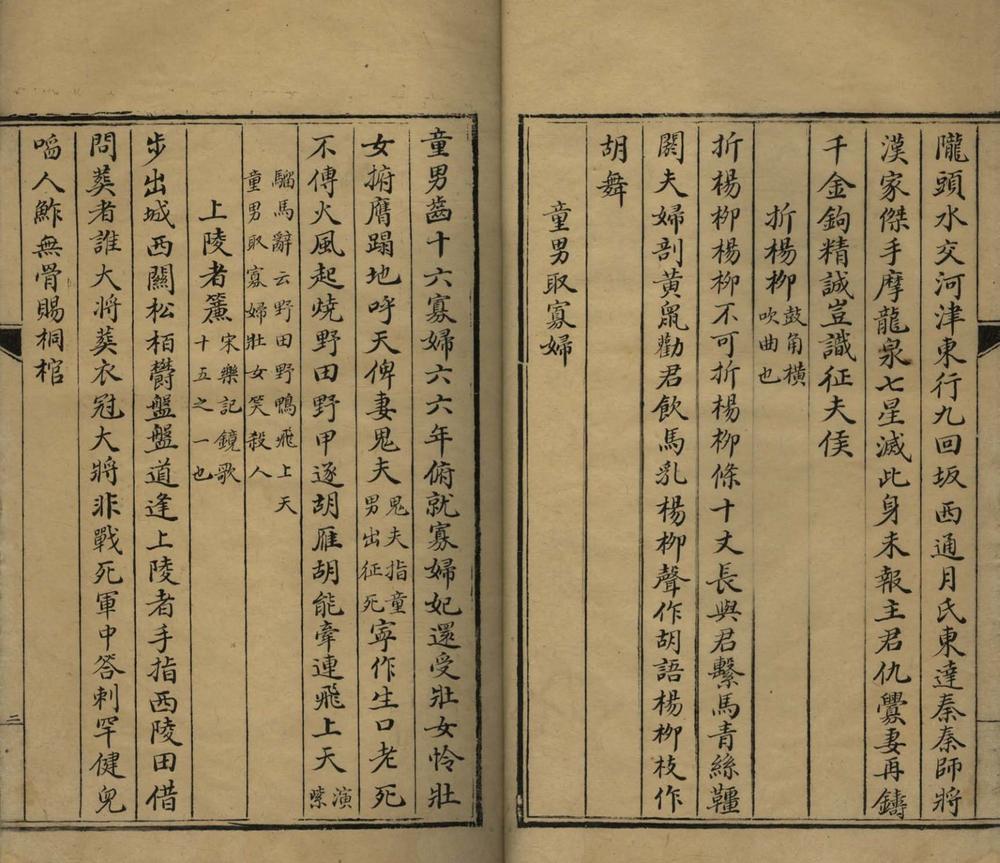 隴頭水交河津東行九回坂西通月氏東達秦秦師將
漢家傑手摩龍泉七星滅此身未報主君仇釁妻再鑄
千金鉤精誠豈識征夫侯
折楊柳鼓角橫吹曲也
折楊柳楊柳不可折楊柳條十丈長與君繫馬青絲韁
閼夫婦剖黃鼠勸君飲馬乳楊柳聲作胡語楊柳枝作
胡舞
童男取寡婦
童男齒十六寡婦六六年俯就寡婦妃還受壯女怜壯
女擗膺蹋地呼天俾妻鬼夫鬼夫指童男出征死寜作生口老死
不傳火風起燒野田野甲逐胡雁胡能牽連飛上天演
騧馬辭云野田野鴨飛上天
童男取寡婦壯女笑殺人
上陵者篇宋樂記鏡歌十五之一也
步出城西關松栢欝盤盤道逢上陵者手指西陵田借
問葬者誰大將葬衣冠大將非戰死軍中荅剌罕健兒
啗人鮓無骨賜桐棺
二